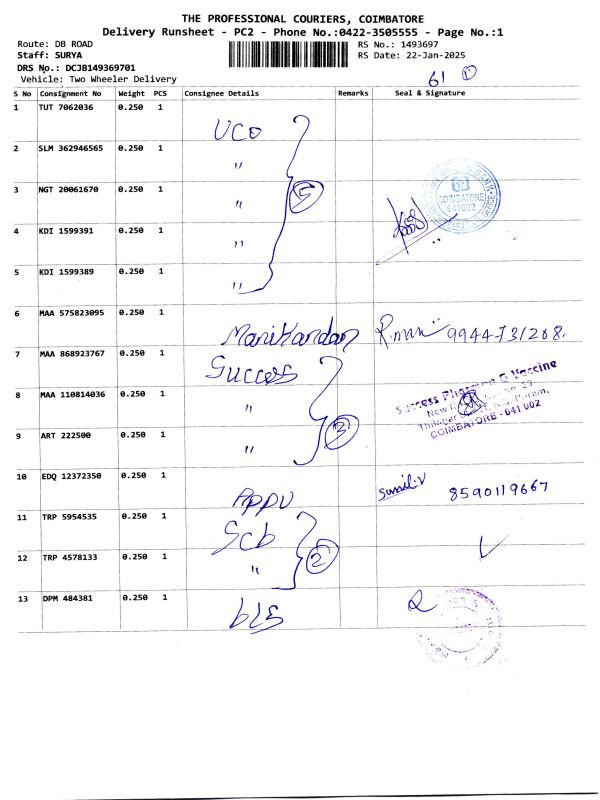 THE PROFESSIONAL COURIERS, COIMBATORE
Delivery Runsheet - PC2 - Phone No.:0422-3505555 - Page No.:1
Route: DB ROAD
RS No.: 1493697
Staff: SURYA
RS Date: 22-Jan-2025
DRS No.: DCJB149369701
Vehicle: Two Wheeler Delivery
61 1
S No Consignment No Weight PCS Consignee Details Remarks Seal & Signature
1 TUT 7062036 0.250 1 UCO
2 SLM 362946565 0.250 1 "
3 NGT 20061670 0.250 1 " 5
COIMBATORE
641002
4 KDI 1599391 0.250 1 "
5 KDI 1599389 0.250 1 "
6 MAA 575823095 0.250 1 Manikandan R.mani 9944731268.
7 MAA 868923767 0.250 1 Success
8 MAA 110814036 0.250 1 "
Success Pharma & Vaccine
COIMBATORE - 641 002
9 ART 222500 0.250 1 " 3
10 EDQ 12372350 0.250 1 Appu Sunil.V 8590119667
11 TRP 5954535 0.250 1 Scb
12 TRP 4578133 0.250 1 " 2
13 DPM 484381 0.250 1